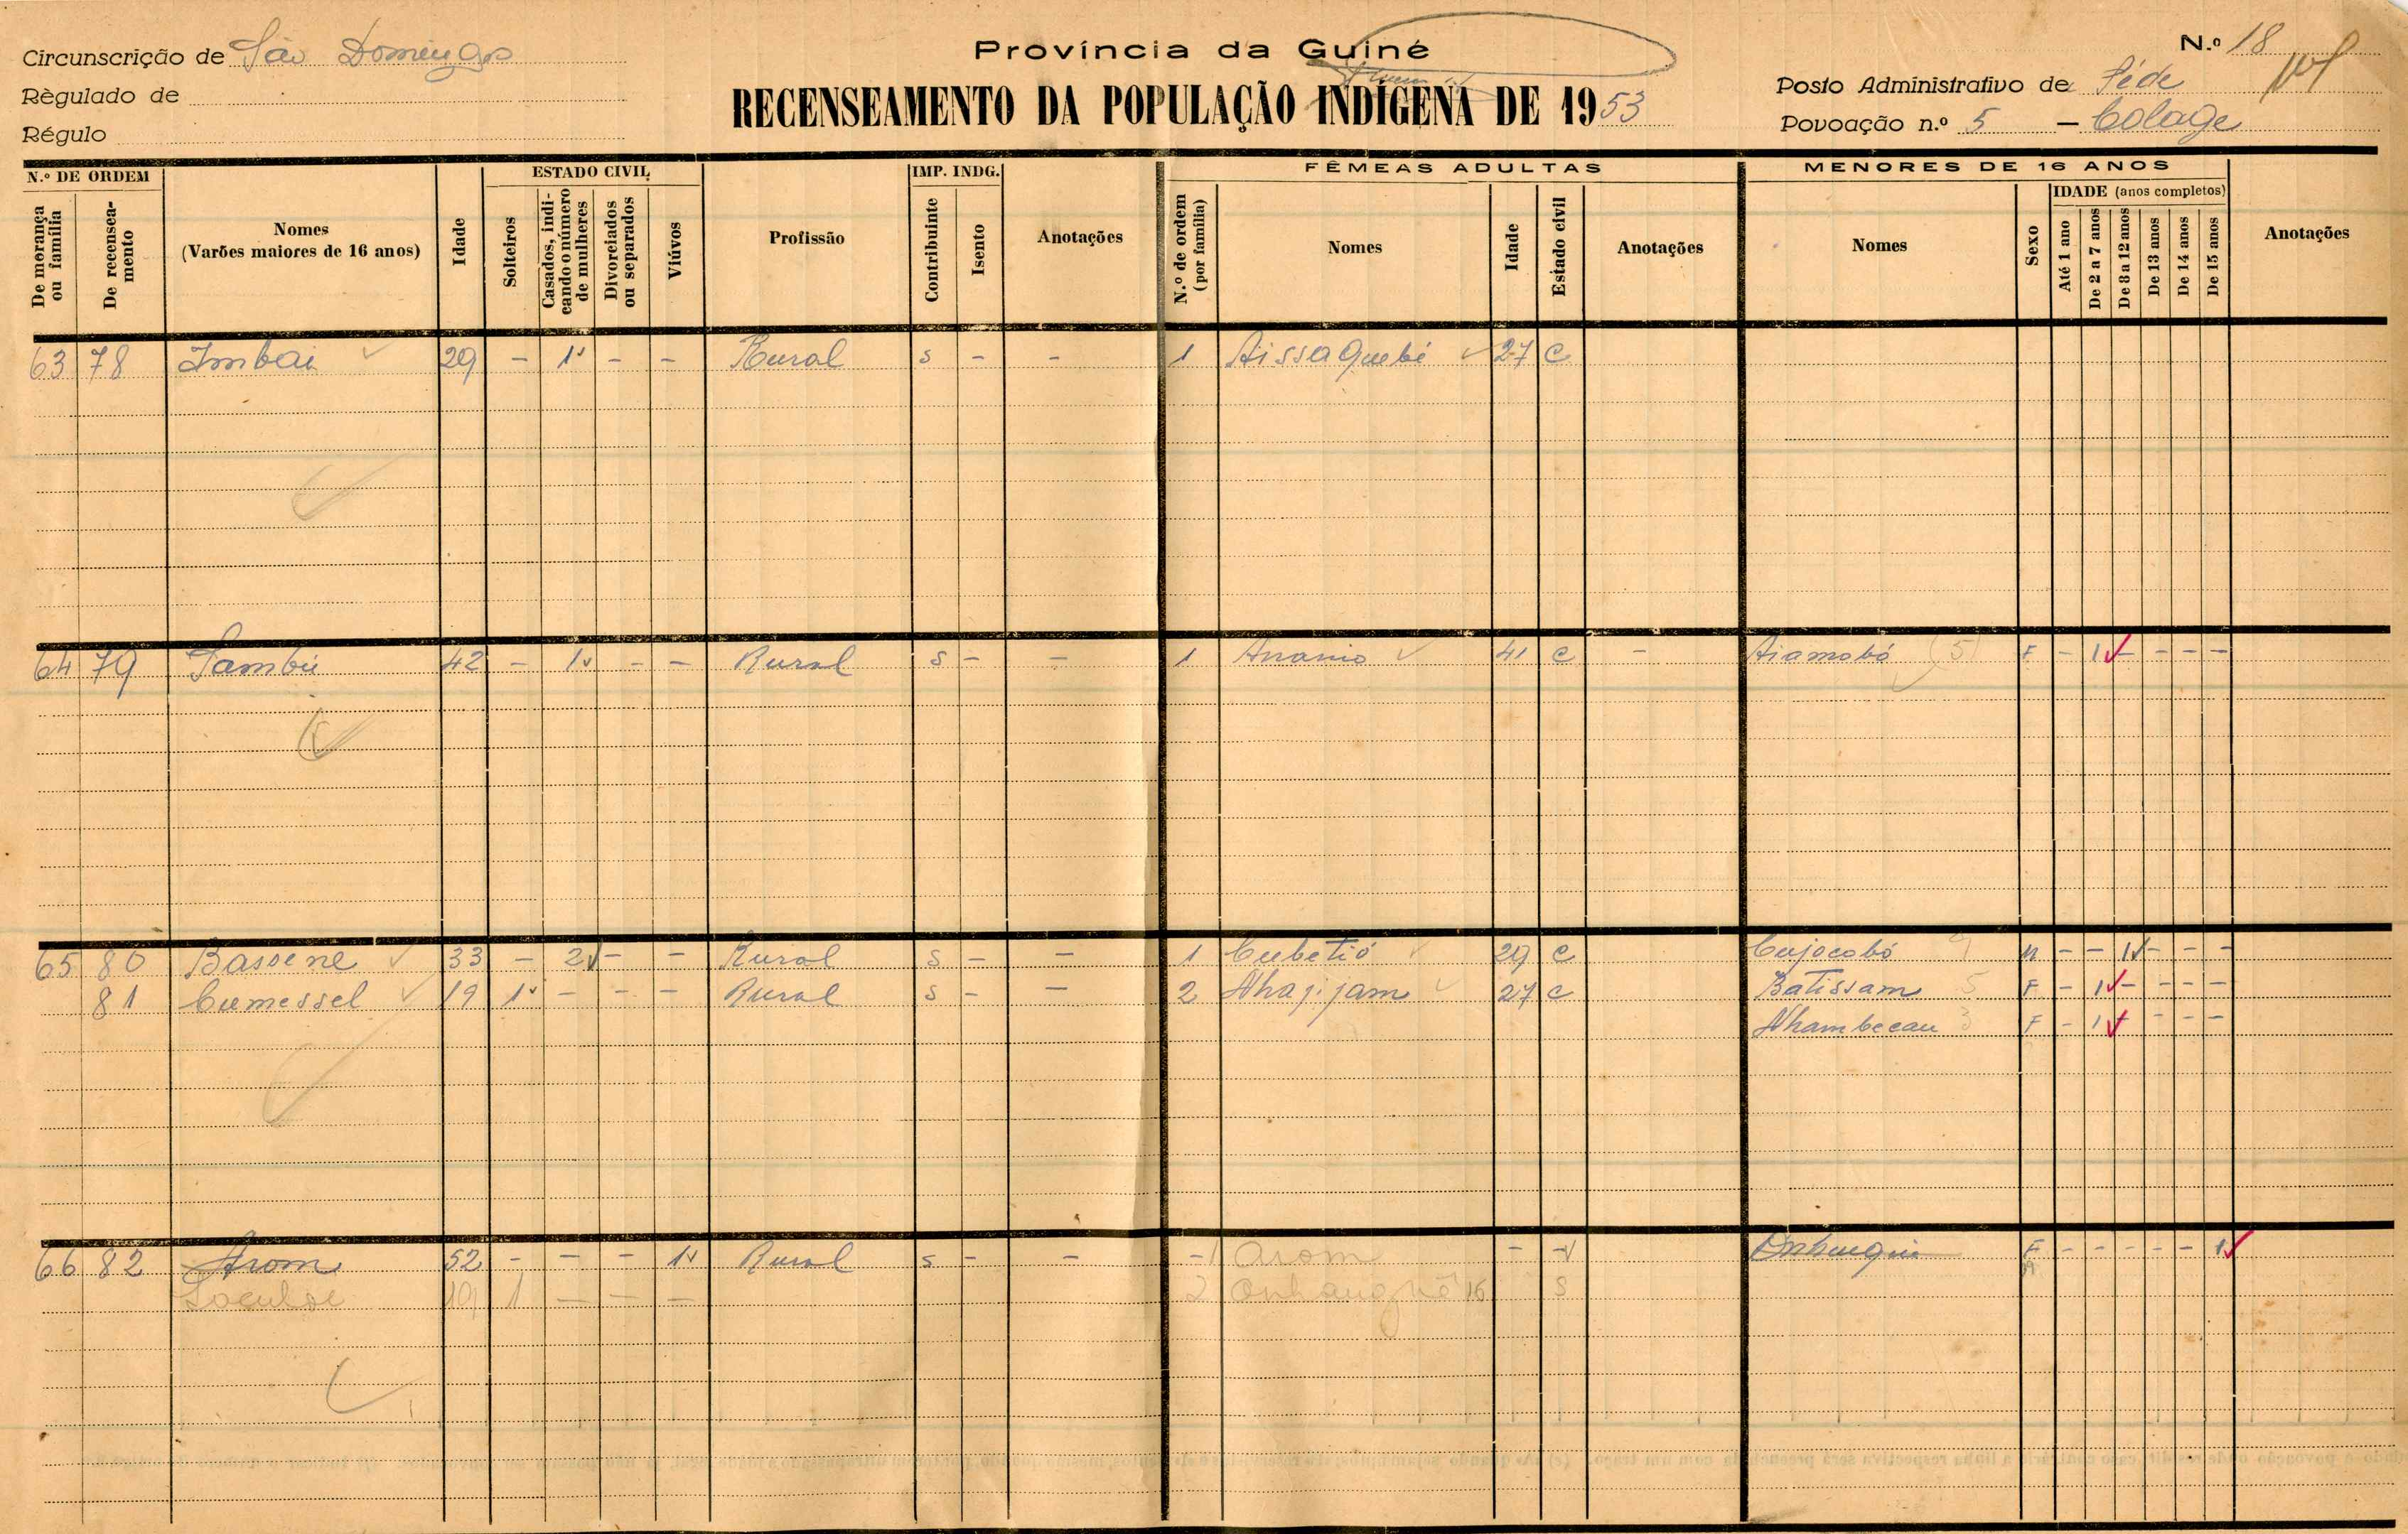 Circunscrição de São Domingos
Règulado de
Régulo
Província da Guiné
RECENSEAMENTO DA POPULAÇÃO INDÍGENA DE 1953
N.º 18
Posto Administrativo de Séde
Povoação n.º 5 — Colage
N.º DE ORDEM
De morança ou família
De recenseamento
Nomes
(Varões maiores de 16 anos)
Idade
ESTADO CIVIL
Solteiros
Casados, indicando o número de mulheres
Divorciados ou separados
Viúvos
Profissão
IMP. INDG.
Contribuinte
Isento
Anotações
FÊMEAS ADULTAS
N.º de ordem (por família)
Nomes
Idade
Estado civil
Anotações
MENORES DE 16 ANOS
Nomes
Sexo
IDADE (anos completos)
Até 1 ano
De 2 a 7 anos
De 8 a 12 anos
De 13 anos
De 14 anos
De 15 anos
Anotações
63 78 Imbai 29 – 1 – – Rural s – – 1 Aissa Quebé 27 C
64 79 Sambú 42 – 1 – – Rural s – – 1 Anamio 41 C – Aiamobó (5) F – 1 – – – –
65 80 Bassene 33 – 2 – – Rural s – – 1 Cubetió 29 C Cujocobó 9 M – – 1 – – –
81 Cumessel 19 1 – – – Rural s – – 2 Nhajijam 27 C Batissam 5 F – 1 – – – –
Nhambecau 3 F – 1 – – – –
66 82 Arom 52 – – – 1 Rural s – – – 1 Arom – – F – – – – – 1
19 1 – – – 2 16 S